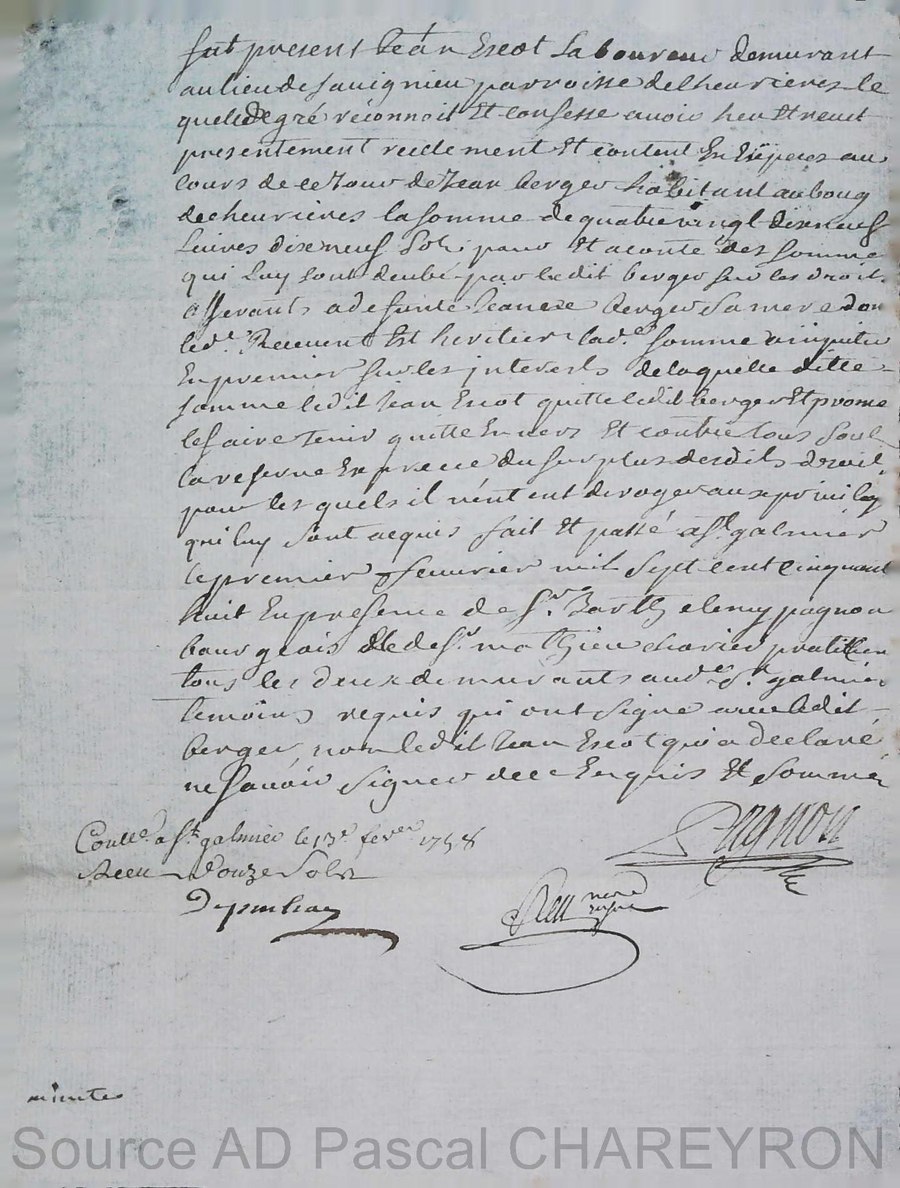 fut present Jean Escot Laboureur demurant
au lieu de Savignieu parroisse de Cheurieres le
quel de gré réconnoit Et confesse avoir heu Et reeut
presentement reelement Et contant En Especes au
cours de ce Jour de Jean berger habitant au bourg
de cheurières la somme de quatre vingt dixneuf
Livres dixneuf Sols pour Et aconte des somme
qui Luy sont deube par ledit berger sur les droit
afferants a defunte Jeanne Berger sa mere don
led.t Recevent Est heritier lad.e somme
En premier sur les interests de laquelle ditte
somme ledit Jean Escot quitte ledit berger Et prome
le faire tenir quitte Envers Et contre tous Soub
la reserve Expresse du surplus desdits droit
pour les quels il n'entent deroger aux privileg
qui luy sont acquis fait Et passé a St galmier
le premier feuvrier mil sept cent cinquant
huit En presence de Sr. Barthelemy pagnon
bourgeois Et de Sr. mathieu charier pratitien
tous les deux demurants aud. St galmier
temoins requis qui ont signe avec ledit
berger, non ledit Jean Escot qui a declaré
ne savoir signer de ce Enquis Et sommé
Pagnon
Conllé a St galmier le 13e fever 1758
Reçu douze Sols
minute
Source AD Pascal CHAREYRON